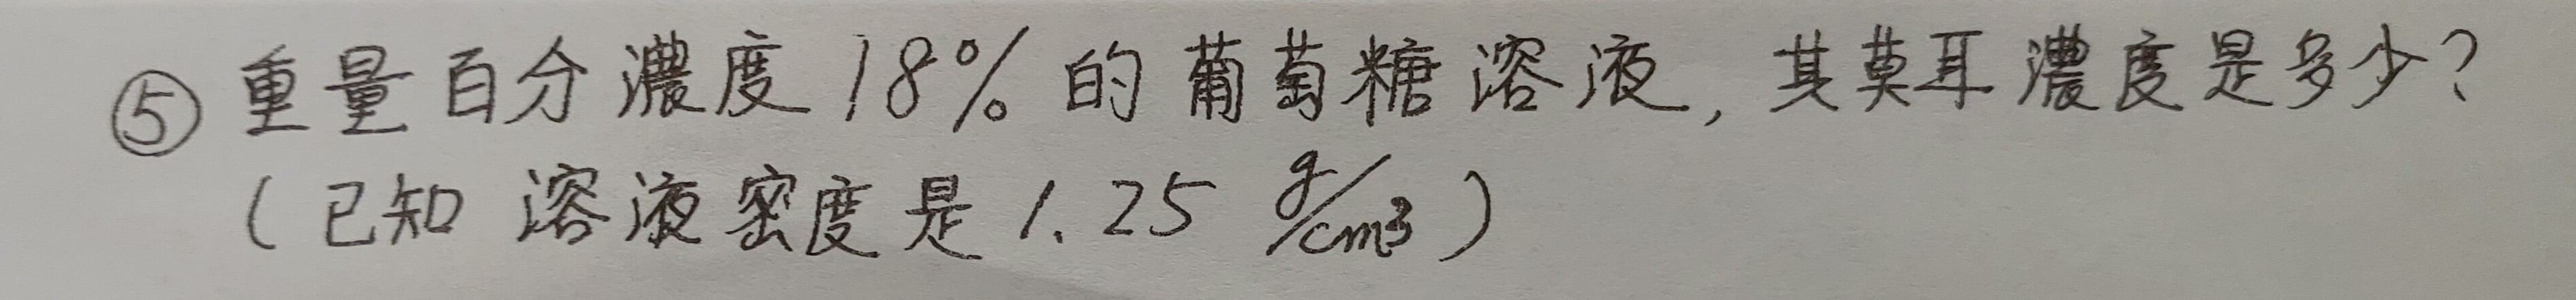 ⑤ 重量百分濃度 18% 的葡萄糖溶液, 其莫耳濃度是多少?
(已知 溶液密度是 1.25 g/cm3)